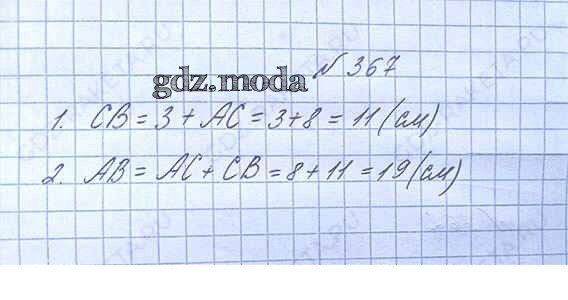 № 367
gdz.moda
1. CB = 3 + AC = 3+8 = 11 (см)
2. AB = AC + CB = 8 + 11 = 19 (см)